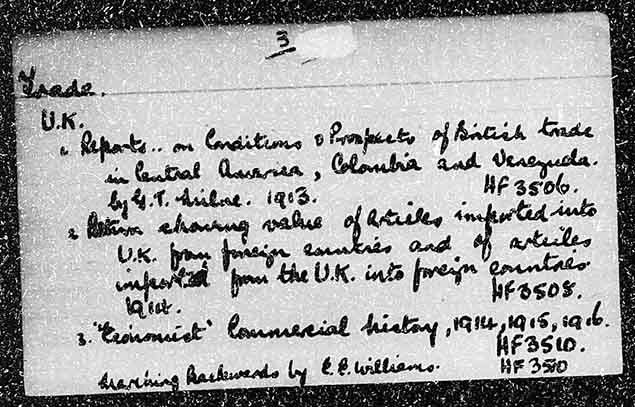 3
Trade.
U.K.
1. Reports.. on Conditions & Prospects of British trade
in Central America, Colombia and Venezuela.
by G.T. Milne. 1913. HF 3506.
2. Return showing value of articles imported into
U.K. from foreign countries and of articles
imported from the U.K. into foreign countries
1914. HF 3508.
3. "Economist" Commercial history, 1914, 1915, 1916.
HF 3510.
Marching Backwards by E.E. Williams. HF 3510